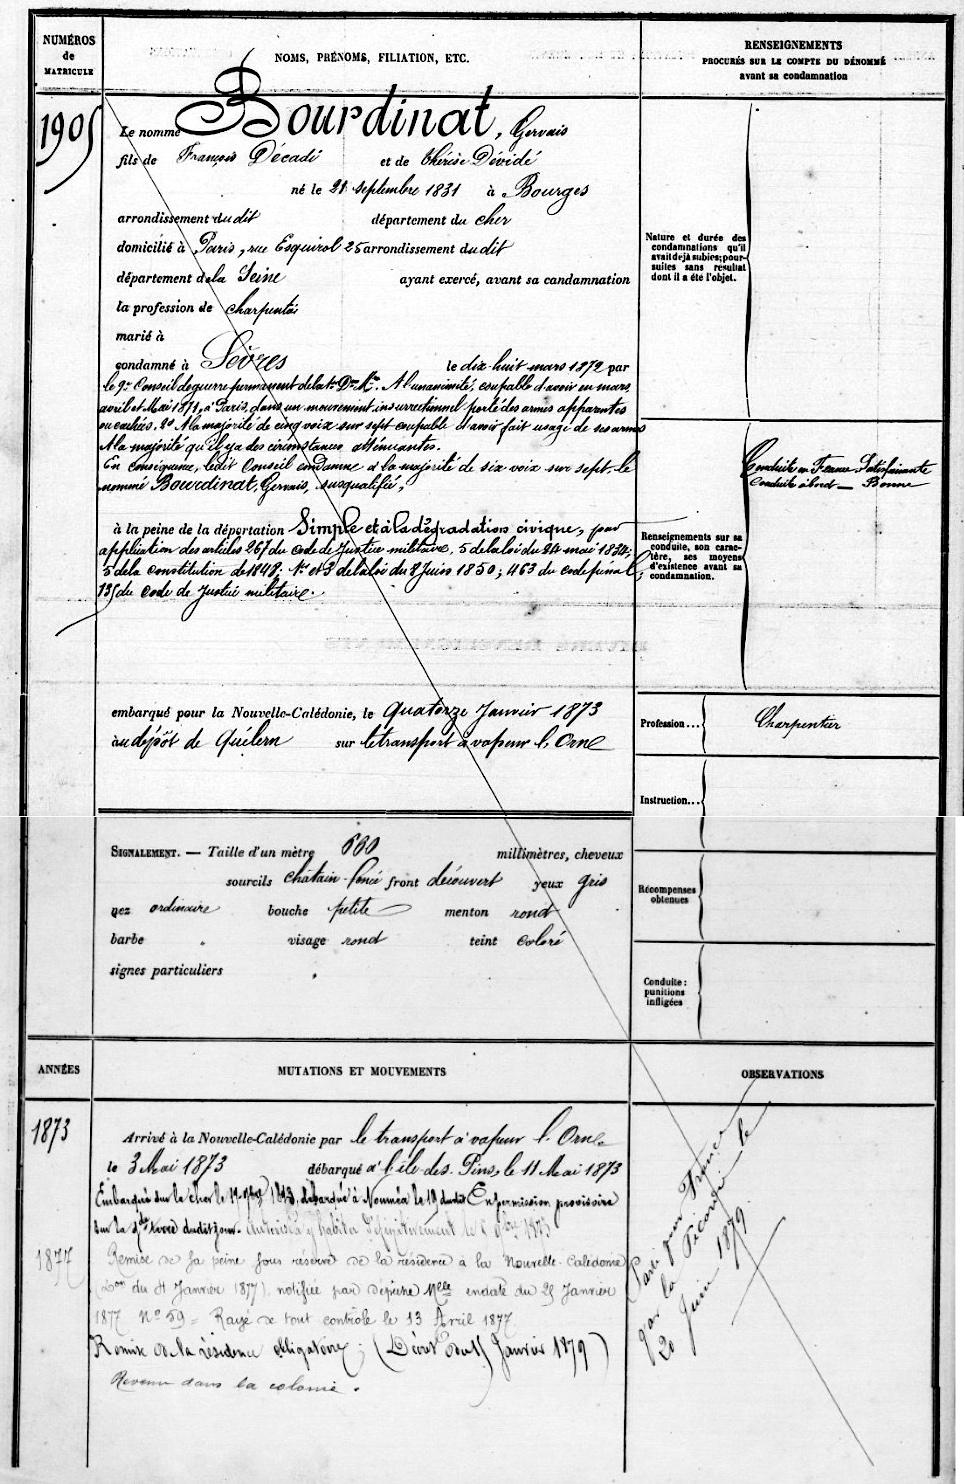 NUMÉROS
de
MATRICULE
NOMS, PRÉNOMS, FILIATION, ETC.
RENSEIGNEMENTS
PROCURÉS SUR LE COMPTE DU DÉNOMMÉ
avant sa condamnation
1905
Le nommé Bourdinat, Gervais
fils de François Décadi et de thérèse Dévidé
né le 21 septembre 1831 à Bourges
arrondissement du dit département du cher
domicilié à Paris, rue Esquirol 25 arrondissement du dit
département de la Seine ayant exercé, avant sa condamnation
la profession de charpentier
marié à
condamné à Sèvres le dix huit mars 1872 par
le 9e Conseil de guerre permanent de la 1re Don Mre. A l'unanimité, coupable d'avoir en mars
avril et Mai 1871, à Paris, dans un mouvement insurrectionnel porté des armes apparentes
ou cachées. 2o A la majorité de cinq voix sur sept coupable d'avoir fait usage de ses armes
A la majorité qu'il y a des circonstances atténuantes.
En conséquence, ledit Conseil condamne à la majorité de six voix sur sept le
nommé Bourdinat, Gervais, susqualifié,
à la peine de la déportation Simple et à la dégradation civique, par
application des articles 267 du code de Justice militaire, 5 de la loi du 24 mai 1834;
5 de la constitution de 1848; 1er et 3 de la loi du 8 Juin 1850; 463 du code pénal;
135 du code de Justice militaire.
embarqué pour la Nouvelle-Calédonie, le quatorze Janvier 1873
au dépôt de Quélern sur le transport à vapeur l'Orne
Nature et durée des
condamnations qu'il
avait déjà subies; pour-
suites sans résultat
dont il a été l'objet.
Renseignements sur sa
conduite, son carac-
tère, ses moyens
d'existence avant sa
condamnation.
Conduite en France Satisfaisante
Conduite à bord — Bonne
Profession... Charpentier
Instruction...
SIGNALEMENT. — Taille d'un mètre 600 millimètres, cheveux
sourcils châtain-foncé front découvert yeux gris
nez ordinaire bouche petite menton rond
barbe " visage rond teint coloré
signes particuliers "
Récompenses
obtenues
Conduite:
punitions
infligées
ANNÉES
MUTATIONS ET MOUVEMENTS
OBSERVATIONS
1873
Arrivé à la Nouvelle-Calédonie par le transport à vapeur l'Orne
le 3 Mai 1873 débarqué à l'île des Pins, le 11 Mai 1873
Embarqué sur le cher le 17 9bre 1873, débarqué à Nouméa le 19 dudit En permission provisoire
sur la dudit jour. Autorisé à y habiter définitivement le 9bre 1873
1877
Remise de sa peine sous réserve de la résidence à la Nouvelle Calédonie
(Don du 4 Janvier 1877), notifiée par dépêche Mlle en date du 25 Janvier
1877 No 59 = Rayé de tout contrôle le 13 Avril 1877.
Remise de la résidence obligatoire; (Décret du 15 Janvier 1879)
Revenu dans la colonie.
Parti pour France
par la Picardie le
20 Juin 1879.